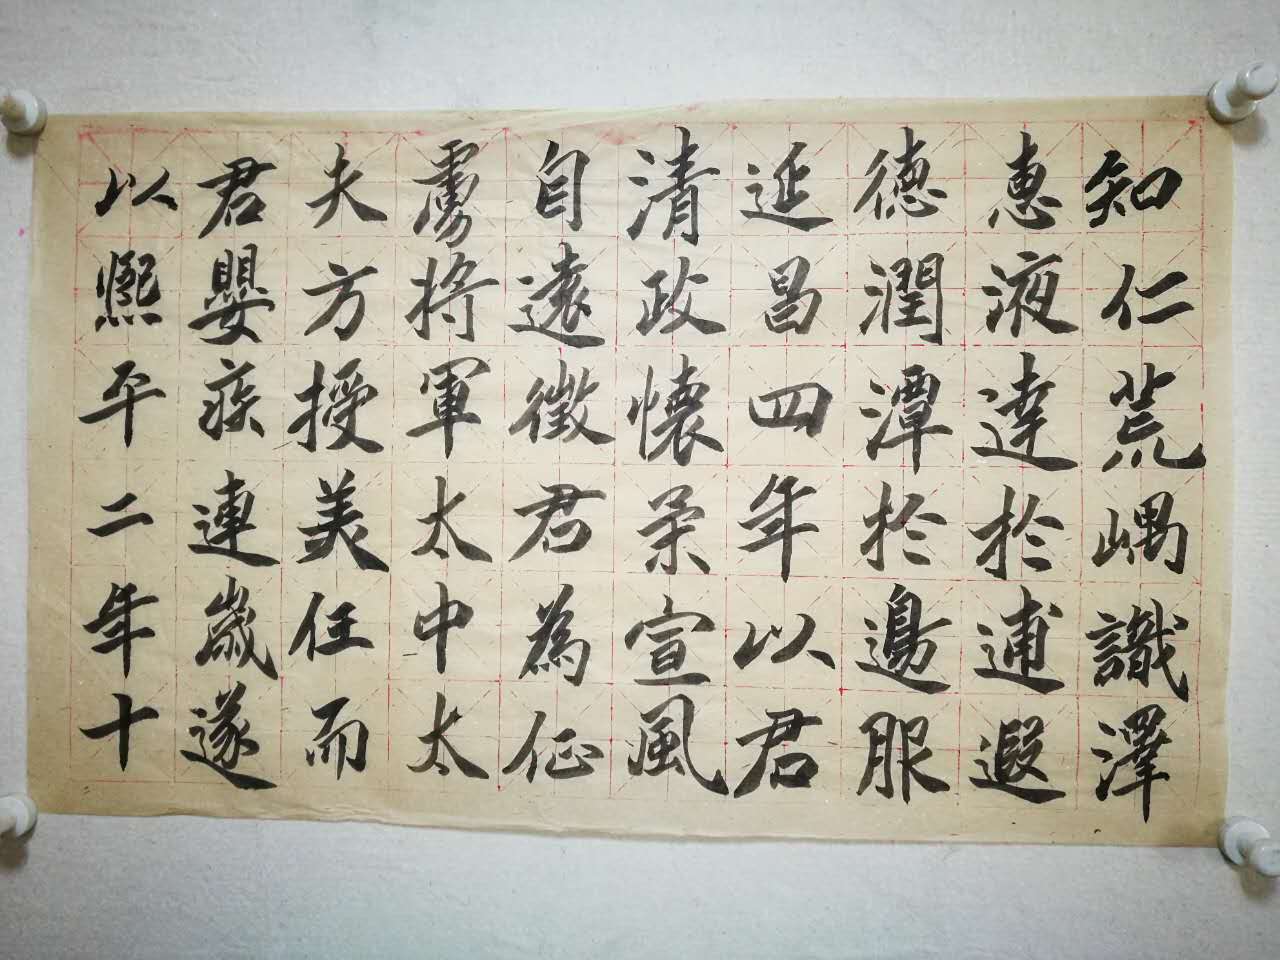 知仁荒嵎識澤
惠液達於逋遐
德潤潭於邊服
延昌四年以君
清政懷柔宣風
自遠徵君為征
虜將軍太中太
夫方授美任而
君嬰疾連歲遂
以熙平二年十